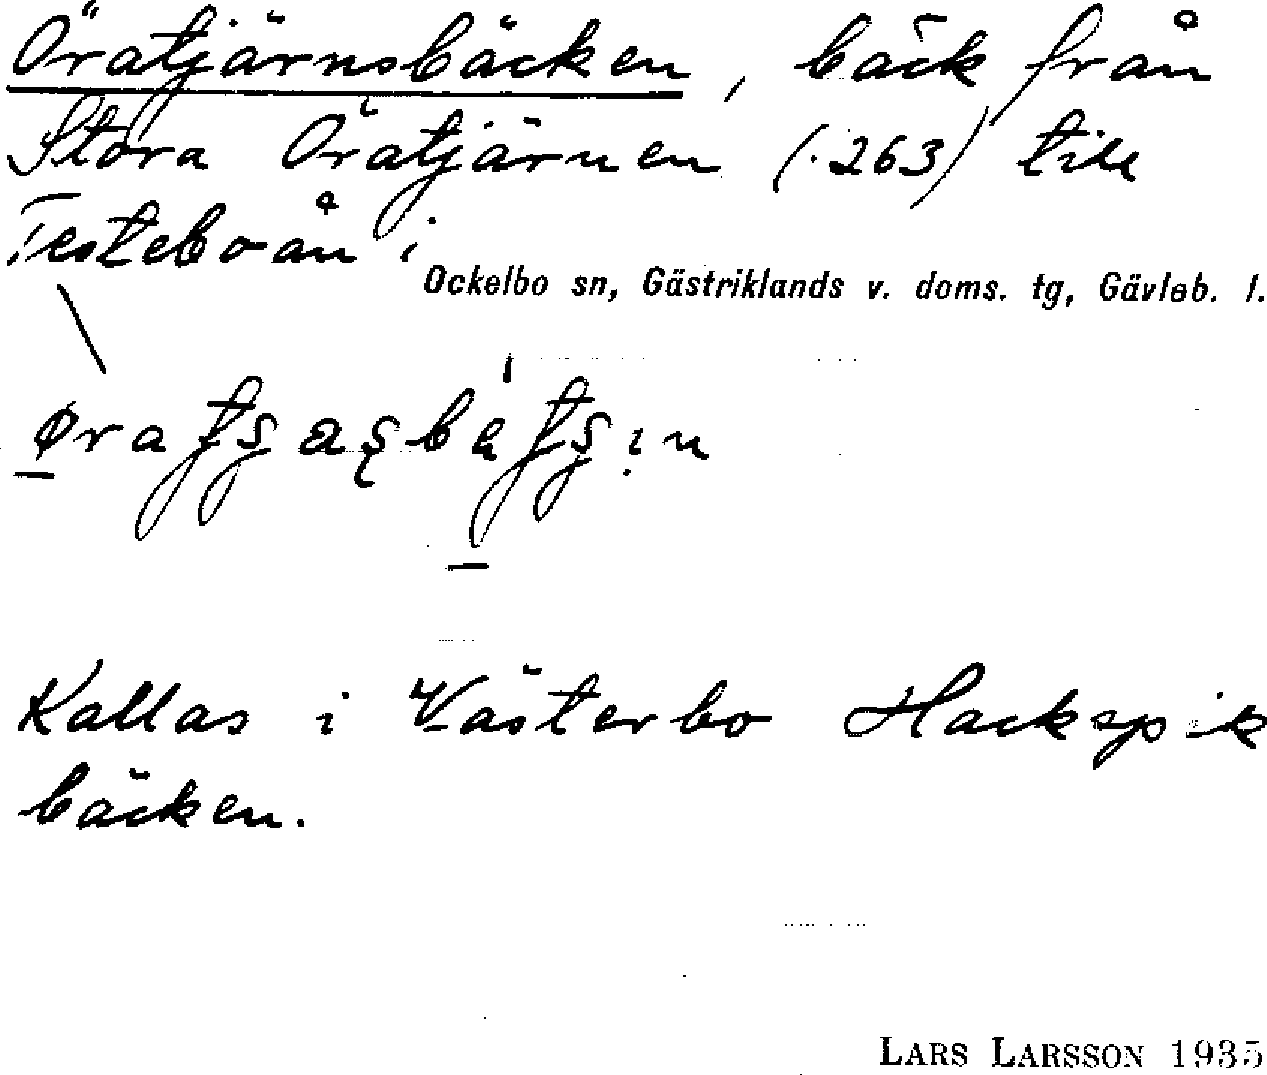 Öratjärnsbäcken, bäck från
Stora Öratjärnen (.263) till
Testeboån i
Ockelbo sn, Gästriklands v. doms. tg, Gävleb. l.
Kallas i Västerbo Hackspik
bäcken.
LARS LARSSON 1935